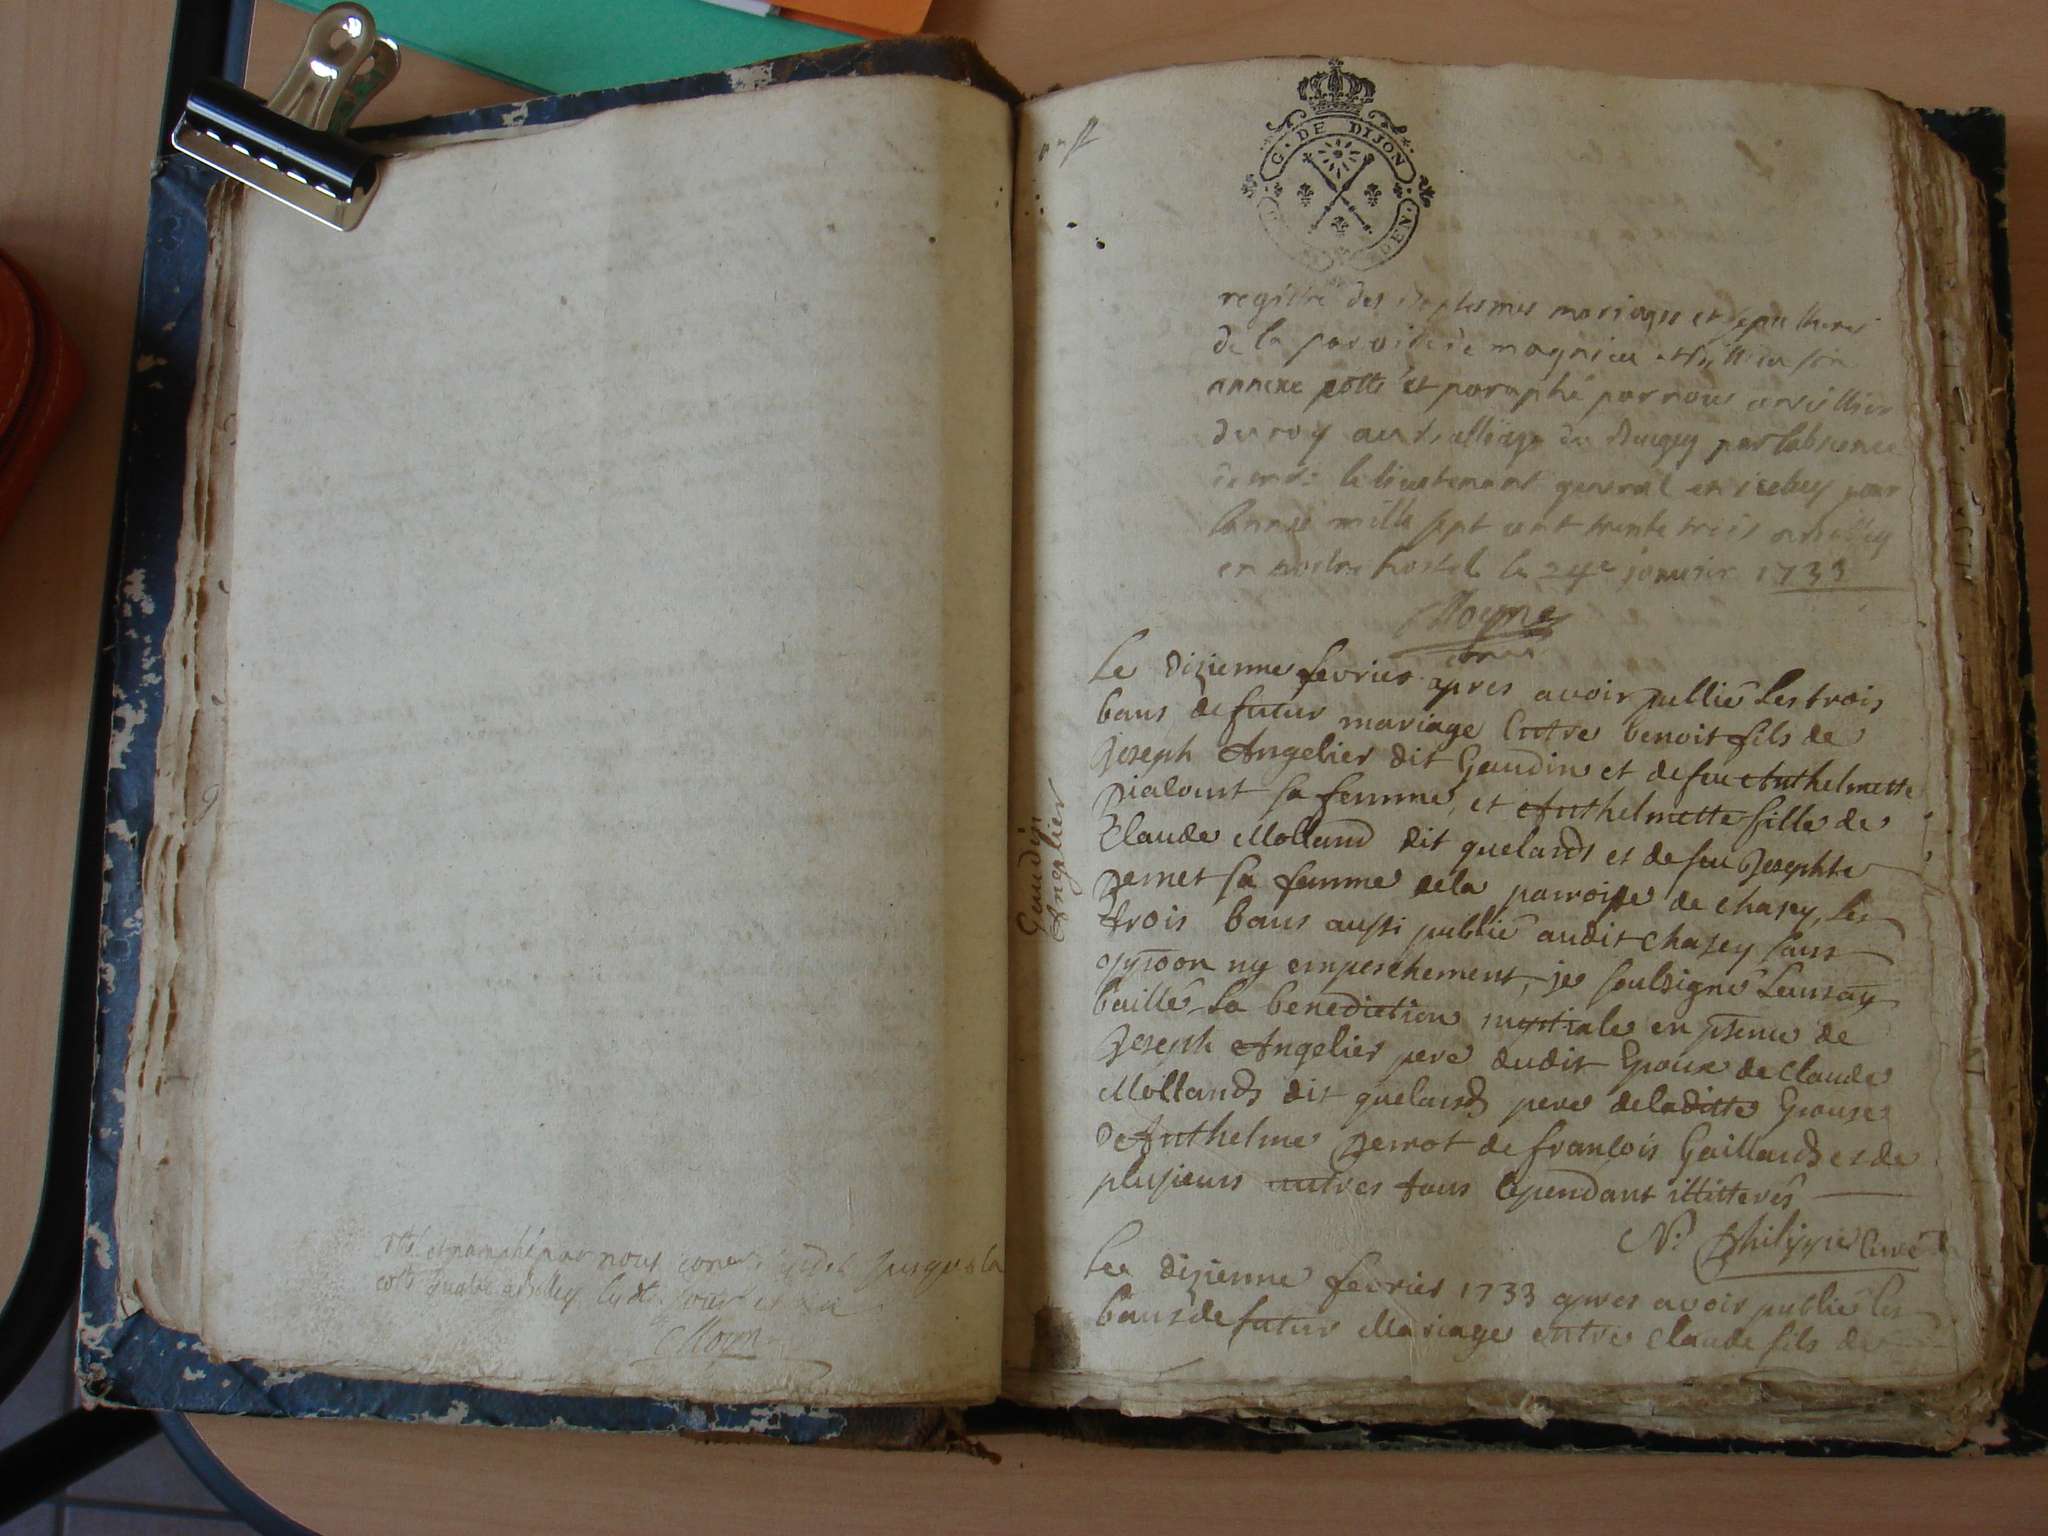 par nous
Jusques a la
cotte quatre a Belley
Moyne
G. DE DIJON
DEN
registre des baptesmes mariages et sepultures
de la parroisse de magnieu
annexe cotté et paraphé par nous conseillier
du roy au bailliage du Bugey par labscence
le lieutenant general en icelluy pour
lannee mille sept cent trente trois a Belley
en nostre hostel le 24e janvier 1733
Moyne
Gaudin
Angelier
Le dizienne fevrier apres avoir publié les trois
bans de futur mariage Entre benoit fils de
Joseph Angelier dit Gaudin et de feu Anthelmette
sa femme, et Anthelmette fille de
Claude Molland dit quelard et de feu Josephte
Pernet sa femme de la parroisse de chasey, les
trois bans aussi publié audit chasey sans
ny empeschement, je soulsigné Leursay
baillé la benediction nuptiale en psence de
Joseph Angelier pere dudit Epoux de Claude
Mollands dit quelard pere de laditte Epouse
de Anthelme Perrot de françois Gaillard et de
plusieurs autres tous cependant illitterés
N. Philippe Curé
Le dizienne fevrier 1733 apres avoir publié les
bans de futur Mariage entre Claude fils de